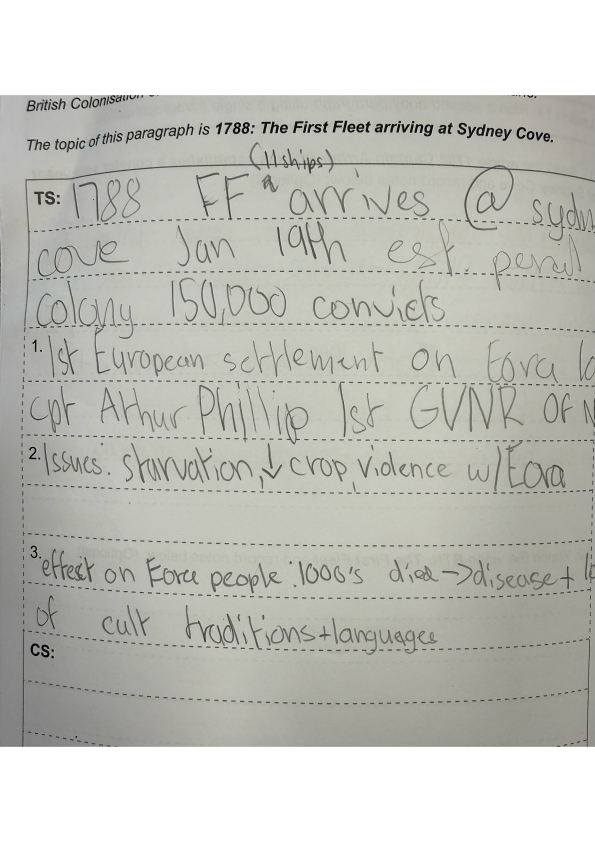 British Colonisation
The topic of this paragraph is 1788: The First Fleet arriving at Sydney Cove.
(11 ships)
TS: 1788 FF arrives @ sydn
cove Jan 19th est. penal
colony 150,000 convicts
1. 1st European settlement on Eora
cpt Athur Phillip 1st GVNR OF N
2. Issues: starvation, ↓ crop, violence w/ Eora
3. effect on Eora people: 1000's died -> disease +
of cult traditions + languages
CS: